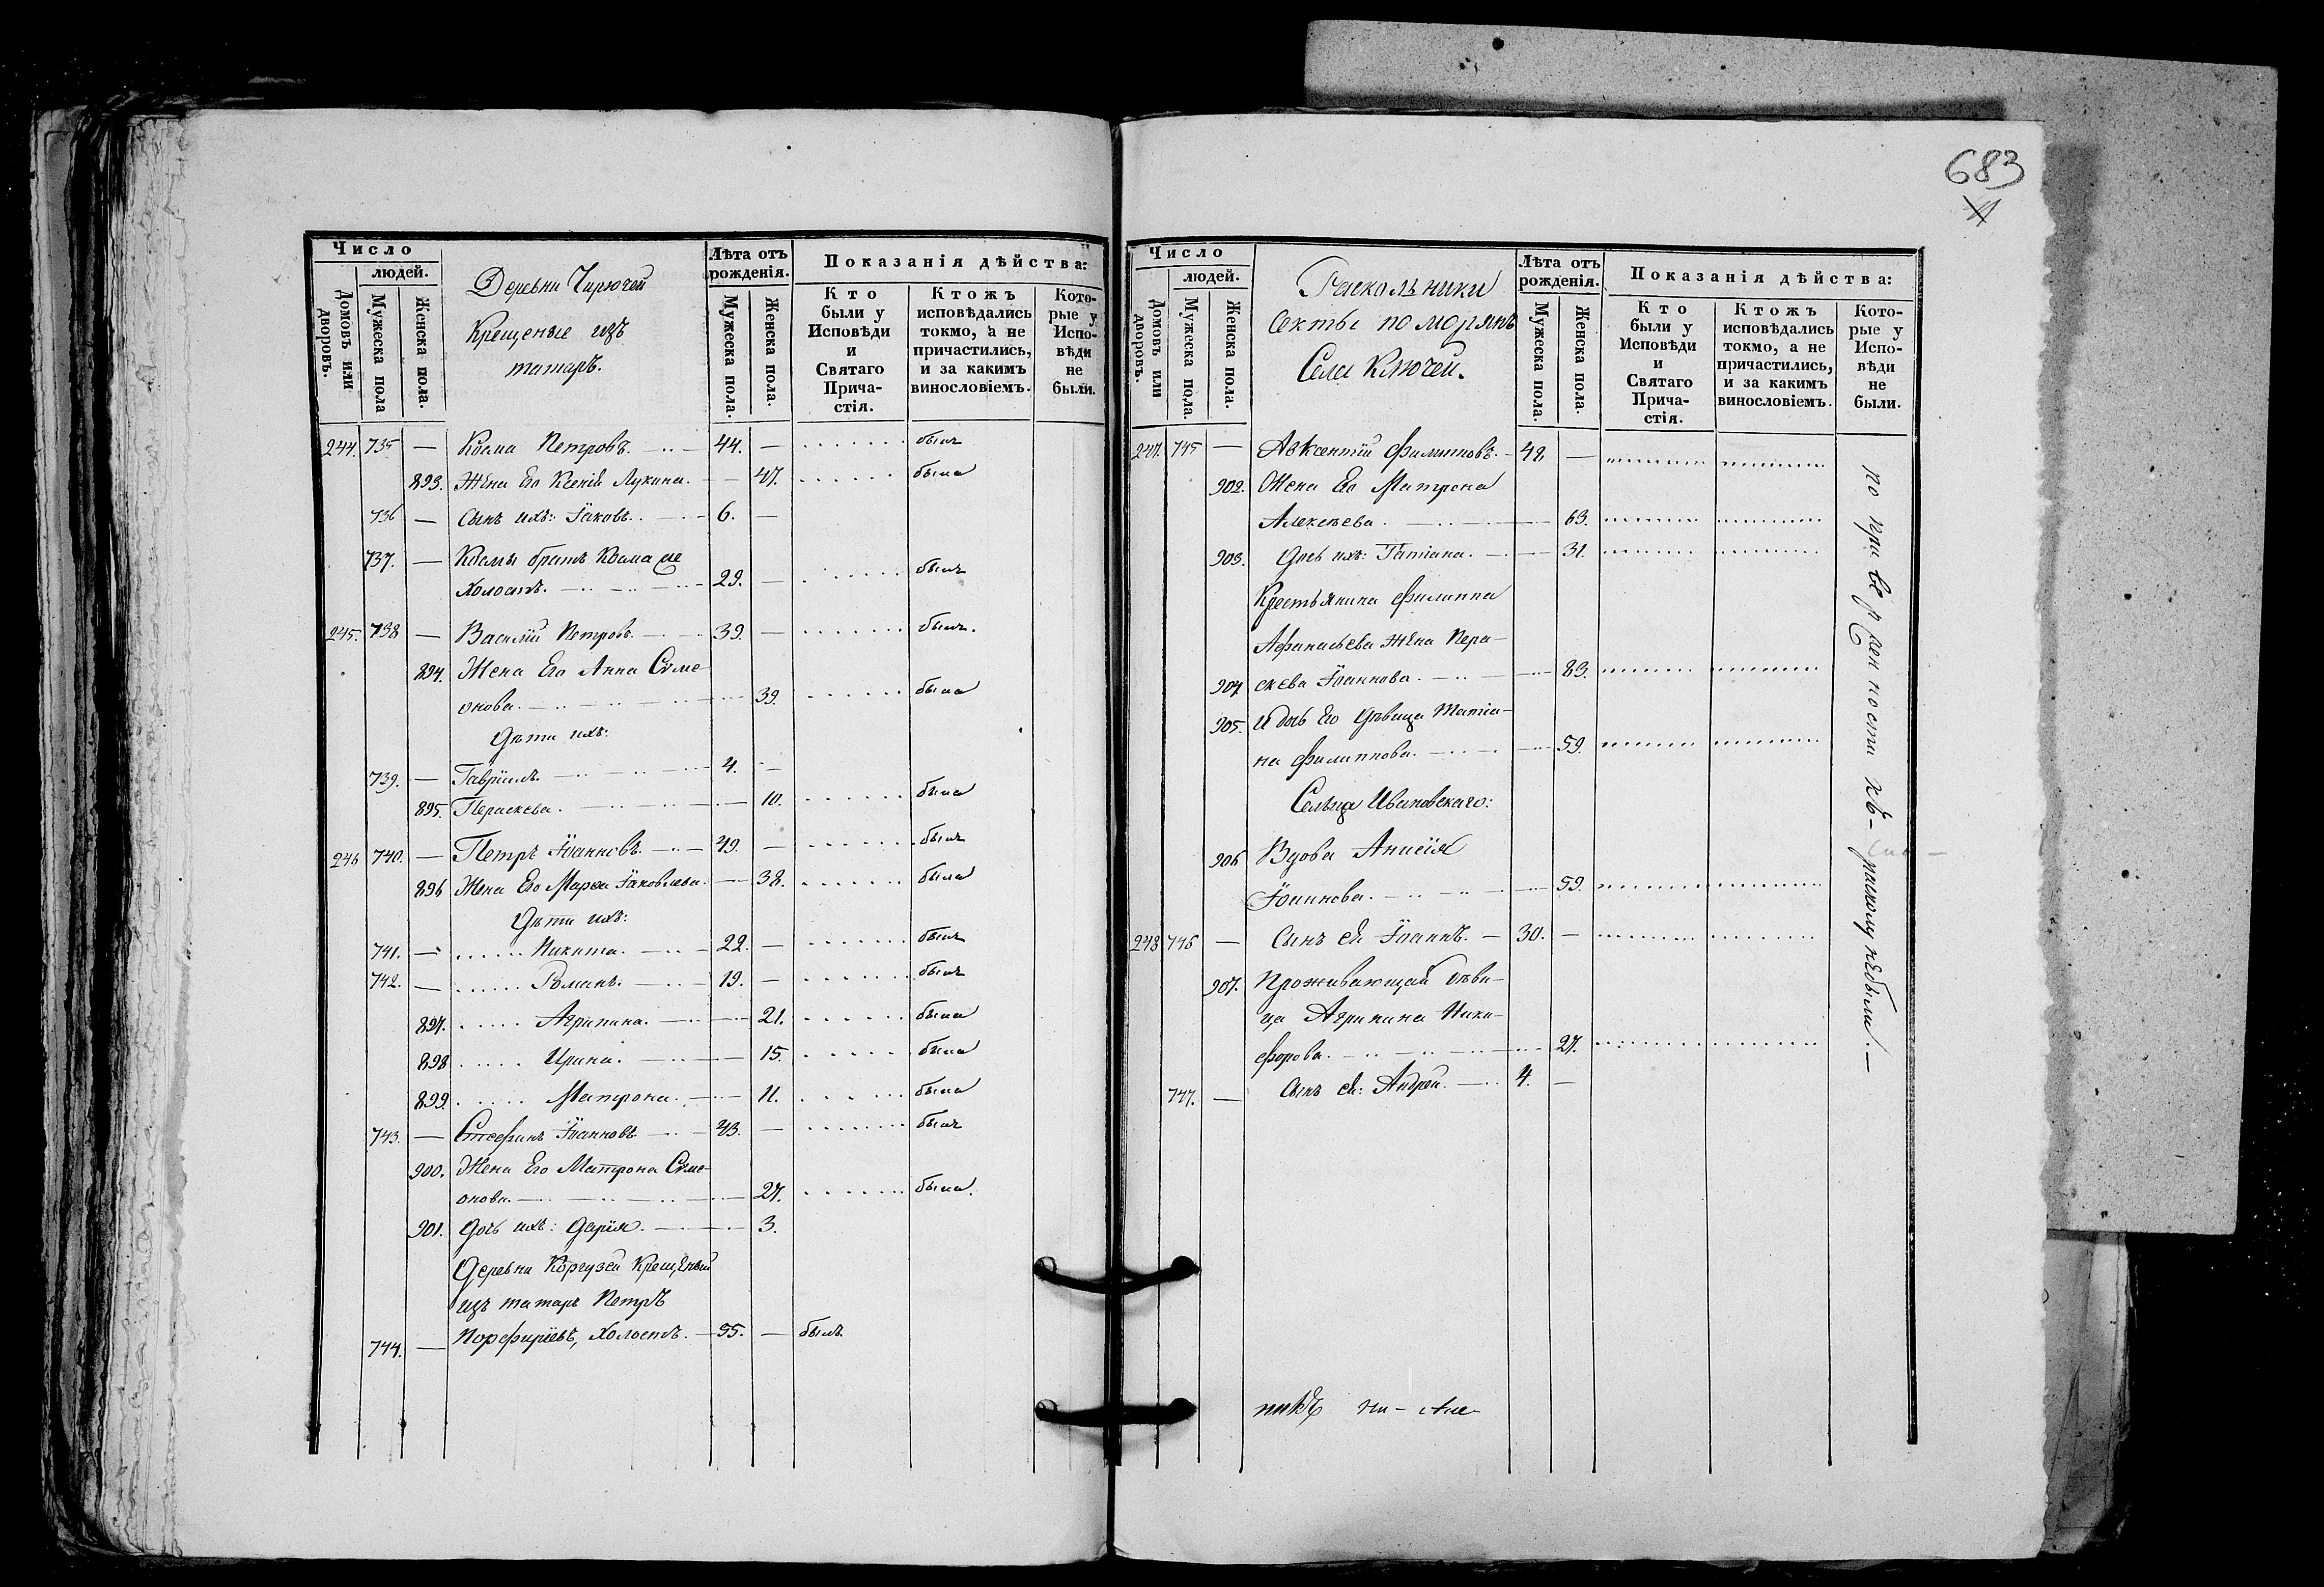 Число
людей.
Домовъ или дворовъ.
Мужеска пола
Женска пола.
Деревни Чирючей
Крещеные изъ
татаръ.
Лѣта отъ рожденія.
Мужеска пола.
Женска пола.
Показанія дѣйства:
Кто были у Исповѣди и Святаго Причастія.
Ктожъ исповѣдались токмо, а не причастились, и за какимъ винословіемъ.
Которые у Исповѣди не были.
244. 735 — Косма Петровъ. 44. — былъ
893. Жена Его Ксенія Лукина. — 47. была
736 — Сынъ ихъ: Іаковъ. 6. —
737. — Космы братъ Косма же
холостъ. 29. — былъ
245. 738 — Василій Петровъ. 39. — былъ.
894. Жена Его Анна Симе-
онова. — 39. была
Дѣти ихъ:
739. — Гавріилъ. 4. —
895. Параскева. — 10. была
246 740. — Петръ Іоанновъ. 49. — былъ
896 Жена Его Марѳа Іаковлева. — 38. была
Дѣти ихъ:
741. — Никита. 22. — былъ
742. — Романъ. 19. — былъ
897. Агрипина. — 21. была
898 Ирина. — 15. была
899. Матрона. — 11. была
743. — Стефанъ Іоанновъ. 43. — былъ
900. Жена Его Матрона Симе-
онова. — 27. была.
901. Дочь ихъ: Дарія. — 3.
Деревни Коргузей Крещеный
изъ татаръ Петръ
744. — Порфиріевъ, Холостъ. 55. — былъ
683
Число
людей.
Домовъ или дворовъ.
Мужеска пола.
Женска пола.
Раскольники
секты поморянъ
Села Ключей.
Лѣта отъ рожденія.
Мужеска пола.
Женска пола.
Показанія дѣйства:
Кто были у Исповѣди и Святаго Причастія.
Ктожъ исповѣдались токмо, а не причастились, и за какимъ винословіемъ.
Которые у Исповѣди не были.
247. 745 — Авксентій Филиповъ. 48. —
902. Жена Его Матрона
Алексѣева. — 63.
903. Дочь ихъ: Татіана. — 31.
Крестьянина Филиппа
Афанасьева жена Пара-
904 скева Іоаннова. — 83.
905. и дочь Его дѣвица Татіа-
на Филиппова. — 59.
Сельца Ивановскаго:
906 Вдова Анисія
Іоаннова. — 59.
248 746 — Сынъ Ея Іоаннъ. 30. —
907. Проживающая дѣви-
ца Агрипина Ники-
форова. — 27.
747. — Сынъ Ея: Андрей. 4. —
по приверженности къ расколу не были.